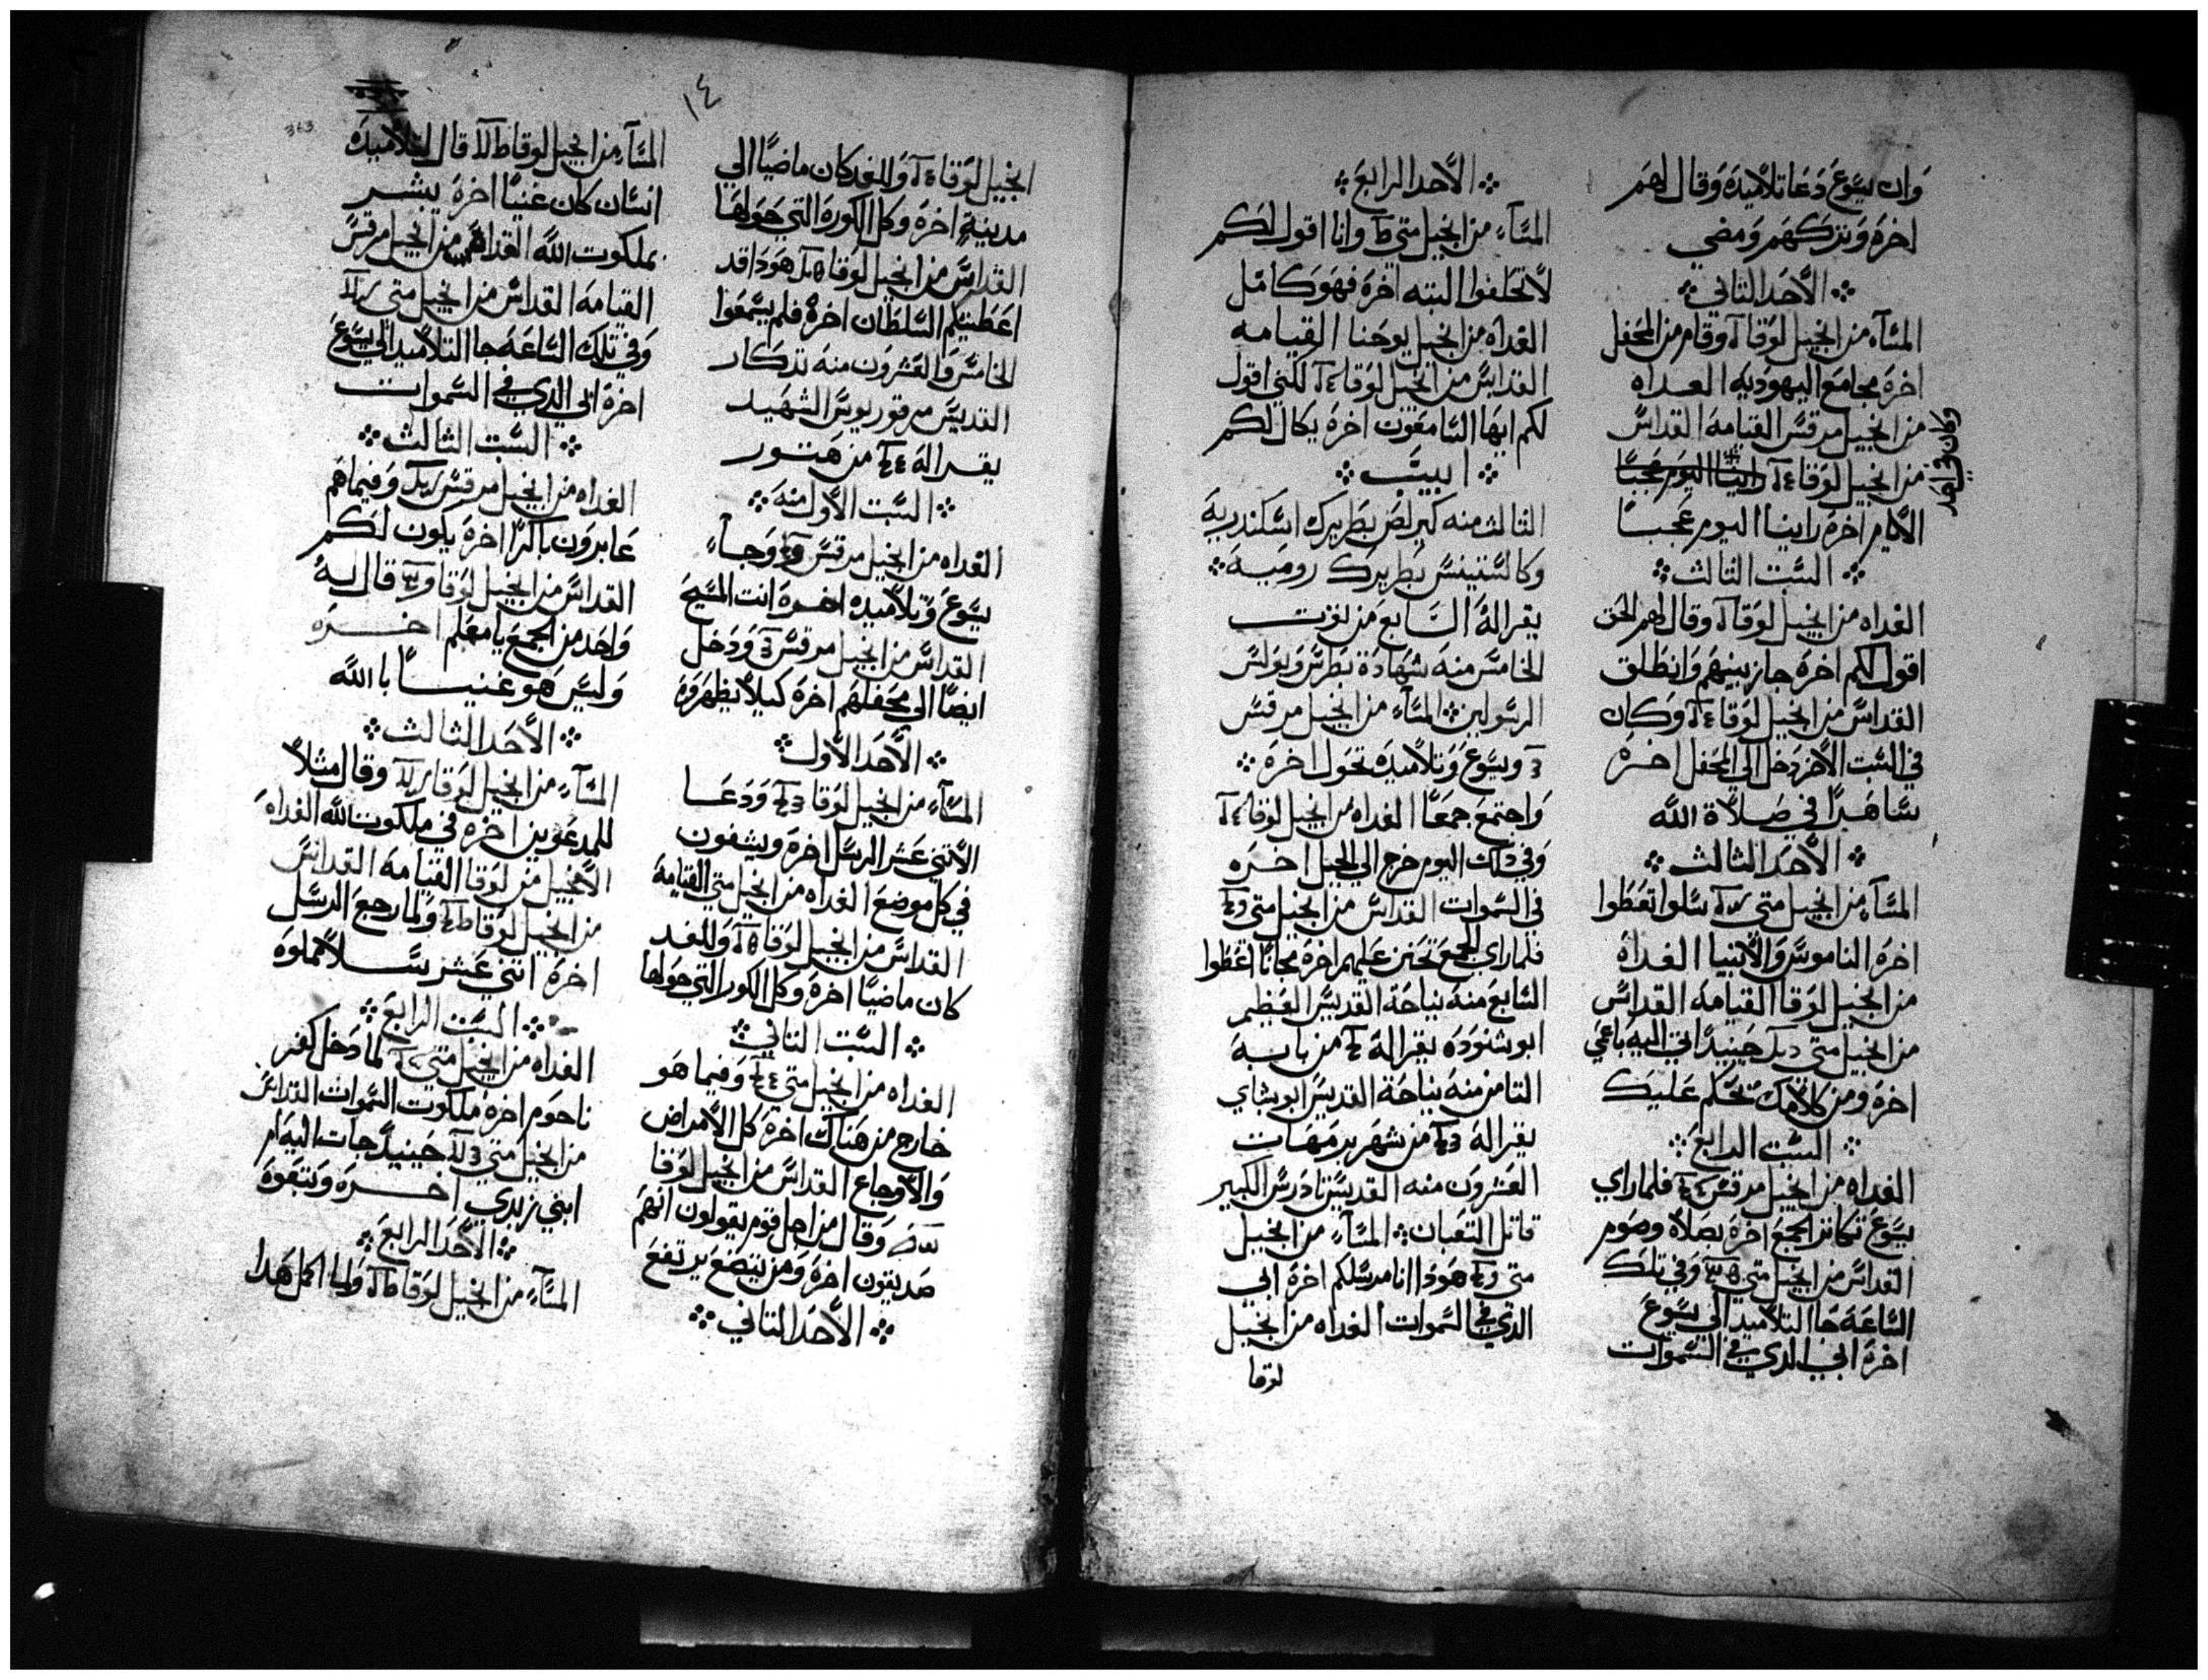 وان يسوع دعا تلاميذه وقال لهم
اخره وتركهم ومضي
الأحد الثاني
المسآء من انجيل لوقا وقام من المحفل
اخره مجامع اليهوديه الغداه
من انجيل مرقس القيامه القداس
من انجيل لوقا راينا اليوم عجبا
وكان في احد
الأيام اخره راينا اليوم عجبا
السبت الثالث
الغداه من انجيل لوقا وقال لهم الحق
اقول لكم اخره جاز بينهم وانطلق
القداس من انجيل لوقا وكان
في السبت الأخر دخل الي المحفل اخره
ساهرا في صلاة الله
الأحد الثالث
المسآء من انجيل متي سلوا تعطوا
اخره الناموس والأنبيا الغداه
من انجيل لوقا القيامه القداس
من انجيل متي حينيدا اتي اليه باعمي
اخره ومن كلامك يحكم عليك
السبت الرابع
الغداه من انجيل مرقس فلما راي
يسوع تكاتر الجمع اخره بصلاة وصوم
القداس من انجيل متي وفي تلك
الساعه جا التلاميد الي يسوع
اخره ابي الدي في السموات
الأحد الرابع
المسآء من انجيل متي وانا اقول لكم
لا تحلفوا البته اخره فهو كامل
الغداه من انجيل يوحنا القيامه
القداس من انجيل لوقا لكني اقول
لكم ايها السامعون اخره يكال لكم
ابيب
الثالث منه كيرلص بطريرك اسكندرية
وكالستينس بطريرك رومية
يقرا له السابع من توت
الخامس منه شهادة بطرس وبولس
الرسولين المسآء من انجيل مرقس
ويسوع وتلاميده تحول اخره
واجتمع جمعا الغداه من انجيل لوقا
وفي دلك اليوم خرج الي الجبل اخره
في السموات القداس من انجيل متي
فلما راي الجمع تحنن عليهم اخره مجانا اعطوا
السابع منه نياحة القديس العظيم
ابو شنوده يقرا له من بابه
الثامن منه نياحة القديس ابو بشاي
يقرا له من شهر برمهات
العشرون منه القديس تادرس الكبير
قاتل التعبان المسآء من انجيل
متي هودا انا مرسلكم اخره ابي
الدي في السموات الغداه من انجيل
لوقا
١٤
انجيل لوقا وللغد كان ماضيا الي
مدينة اخره وكل الكوره التي حولها
القداس من انجيل لوقا هودا قد
اعطيتكم السلطان اخره فلم يسمعوا
الخامس والعشرون منه تدكار
القديس مرقوريوس الشهيد
يقرا له من هتور
السبت الأول منه
الغداه من انجيل مرقس وجآء
يسوع وتلاميده اخره انت المسيح
القداس من انجيل مرقس ودخل
ايضا الي محفلهم اخره كيلا يظهروه
الأحد الأول
المسآء من انجيل لوقا ودعا
الأثني عشر الرسل اخره ويشفون
في كل موضع الغداه من انجيل متي القيامه
القداس من انجيل لوقا وللغد
كان ماضيا اخره وكل الكور التي حولها
السبت الثاني
الغداه من انجيل متي وفيما هو
خارج من هناك اخره كل الأمراض
والأوجاع القداس من انجيل لوقا
وقال من اجل قوم يقولون انهم
صديقون اخره ومن يتضع يرتفع
الأحد الثاني
363
المسآء من انجيل لوقا قال لتلاميده
انسان كان غنيا اخره يبشر
بملكوت الله الغداه من انجيل مرقس
القيامه القداس من انجيل متي
وفي تلك الساعه جا التلاميد الي يسوع
اخره ابي الدي في السموات
السبت الثالث
الغداه من انجيل مرقس وفيما هم
عابرون باكرا اخره يكون لكم
القداس من انجيل لوقا قال له
واحد من الجمع يا معلم اخره
وليس هو غنيا بالله
الأحد الثالث
المسآء من انجيل لوقا وقال مثلا
للمدعوين اخره في ملكوت الله الغداه
الأنجيل من لوقا القيامه القداس
من انجيل لوقا ولما رجع الرسل
اخره اثني عشر سلا مملوه
السبت الرابع
الغداه من انجيل متي لما دخل كفر
ناحوم اخره ملكوت السموات القداس
من انجيل متي حينيد جات اليه ام
ابني زبدي اخره وتبعوه
الأحد الرابع
المسآء من انجيل لوقا ولما اكمل هدا